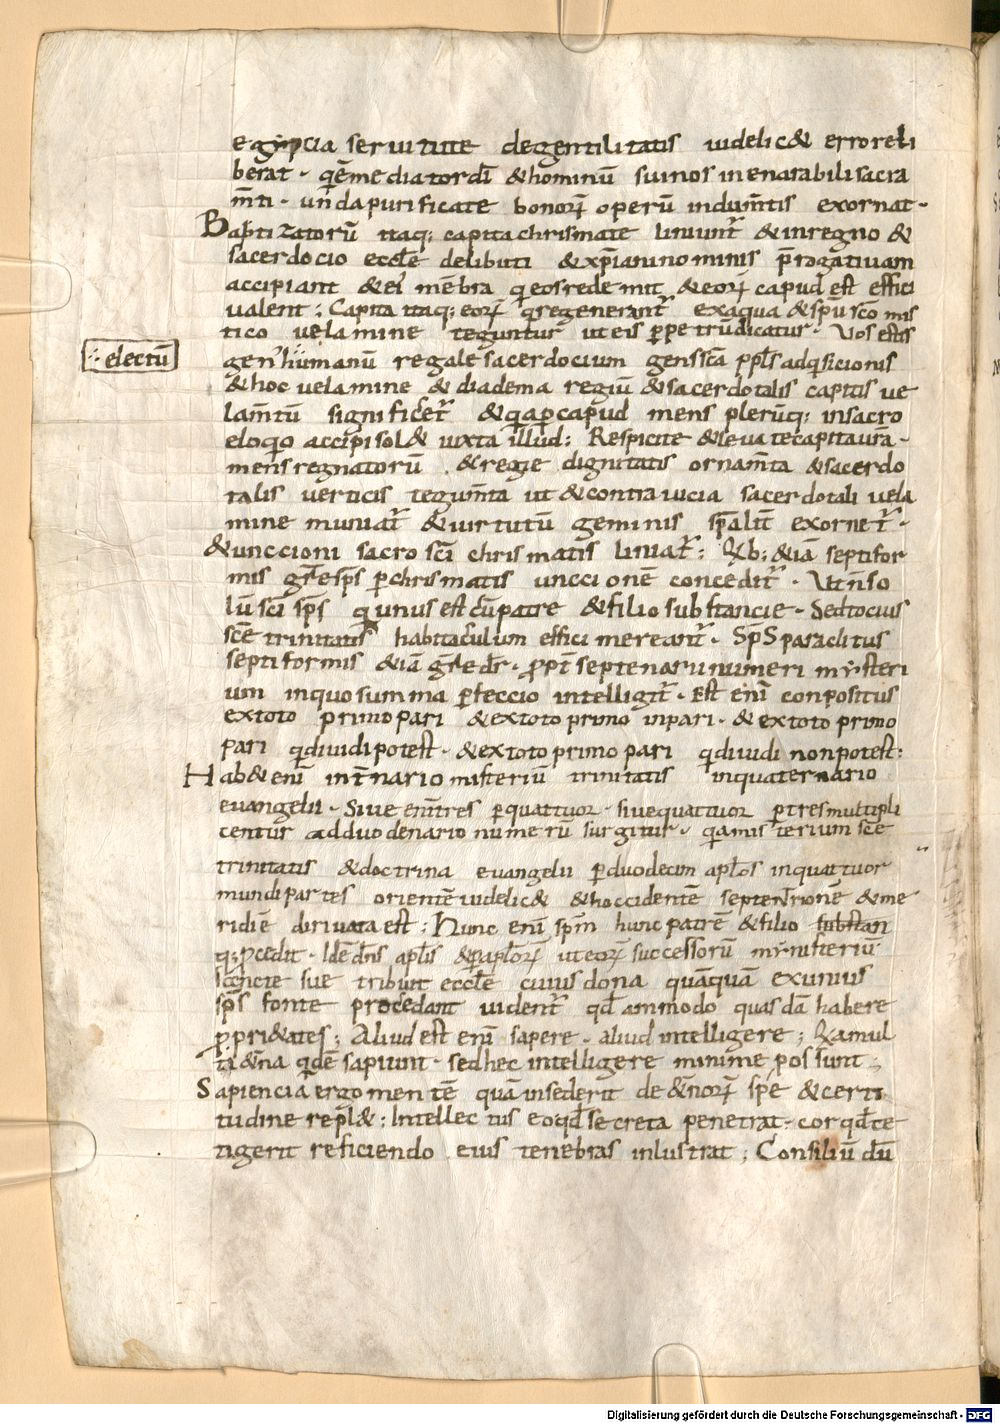 egipcia seruitute degentilitatis uidelic& erroreli
berat · qēmediatordī &hominū suinosinenarabilisacra
m̄ti · un̄dapurificate bonorꝝ operū indum̄tis exornat ·
Baptizatorū itaq; capitachrismate liniunt̄ &inregno &
sacerdocio eccl̄e delibuti &xp̄ianinominis p̄rogatiuam
accipiant &ei mēbra qieosredemit &eorꝝ capud est effici
ualent ; Capita itaq; eorꝝ qiregenerant̄ exaqua &sp̄uscō mis
tico uelamine teguntur uteis ꝑpetrūdicatur · Vos estis
∴ electū
gen' humanū regalesacerdocium genssc̄a ppl̄sadqisicionis
&hoc uelamine & diadema regiū &sacerdotalis capitis ue
lam̄tū significet̄ &qiaꝑcapud mens plerūq; insacro
eloqio accipisol& iuxta illud: Respicite &leuatecapitaur̄a ·
mensregnatorū . &regie dignitatis ornam̄ta &sacerdo
talis uerticis tegum̄ta ut &contrauicia sacerdotali uela
mine muniat̄ &uirtutū geminis sp̄alit̄ exornet̄ ·
&unccioni sacro sc̄i chrismatis liniat̄ ; &iā septifor
mis gr̄esp̄s ꝑchrismatis unccionē concedit̄ · Vtn̄so
lū sc̄i sp̄s qi unus est cūpatre &filio substancie · Sedtocius
sc̄e trinitatis habitaculum effici mereant̄ · Sp̄s paraclitus
septiformis &iā gr̄e dr̄ · ꝓpt̄ septenariinumeri mysteri
um inquosumma ꝑfeccio intelligit̄ · Est enī conpositus
extoto primopari &extotoprimo inpari · &extotoprimo
pari qidiuidipotest · &extotoprimopari qidiuidi nonpotest:
Hab&enī int̄nario misteriū trinitatis inquaternario
euangelii · Siue enī tres ꝑquattuor · siuequattuor ꝑtresmultipli
centur adduodenario numerū surgitur · qiamisterium sc̄e
trinitatis &doctrina euangelii ꝑduodecim apl̄os inquattuor
mundipartes orientēuidelic& &hoccidentē septentrionē &me
ridiē diriuataest : Nunc enī sp̄m hunc patrē &filio substan
q;ꝓcedit · Idēdn̄s apl̄is &ꝑapl̄orꝝ uteorꝝ successorū mynisteriū
scencie sue tribuit eccl̄e cuius dona quāquā exunius
sp̄s fonte procedant uident̄ qd̄ammodo quasdā habere
ꝓpri&ates ; Aliud est enī sapere · aliud intelligere ; Namul
ti &̄na qidē sapiunt · sedhec intelligere minime possunt ;
Sapiencia ergo mentē quā insederit de&̄norꝝ spe &certi
tudine repl& : Intellectus eoqd̄secreta penetrat · cor qd̄te
tigerit reficiendo eius tenebras inlustrat ; Consiliū dū